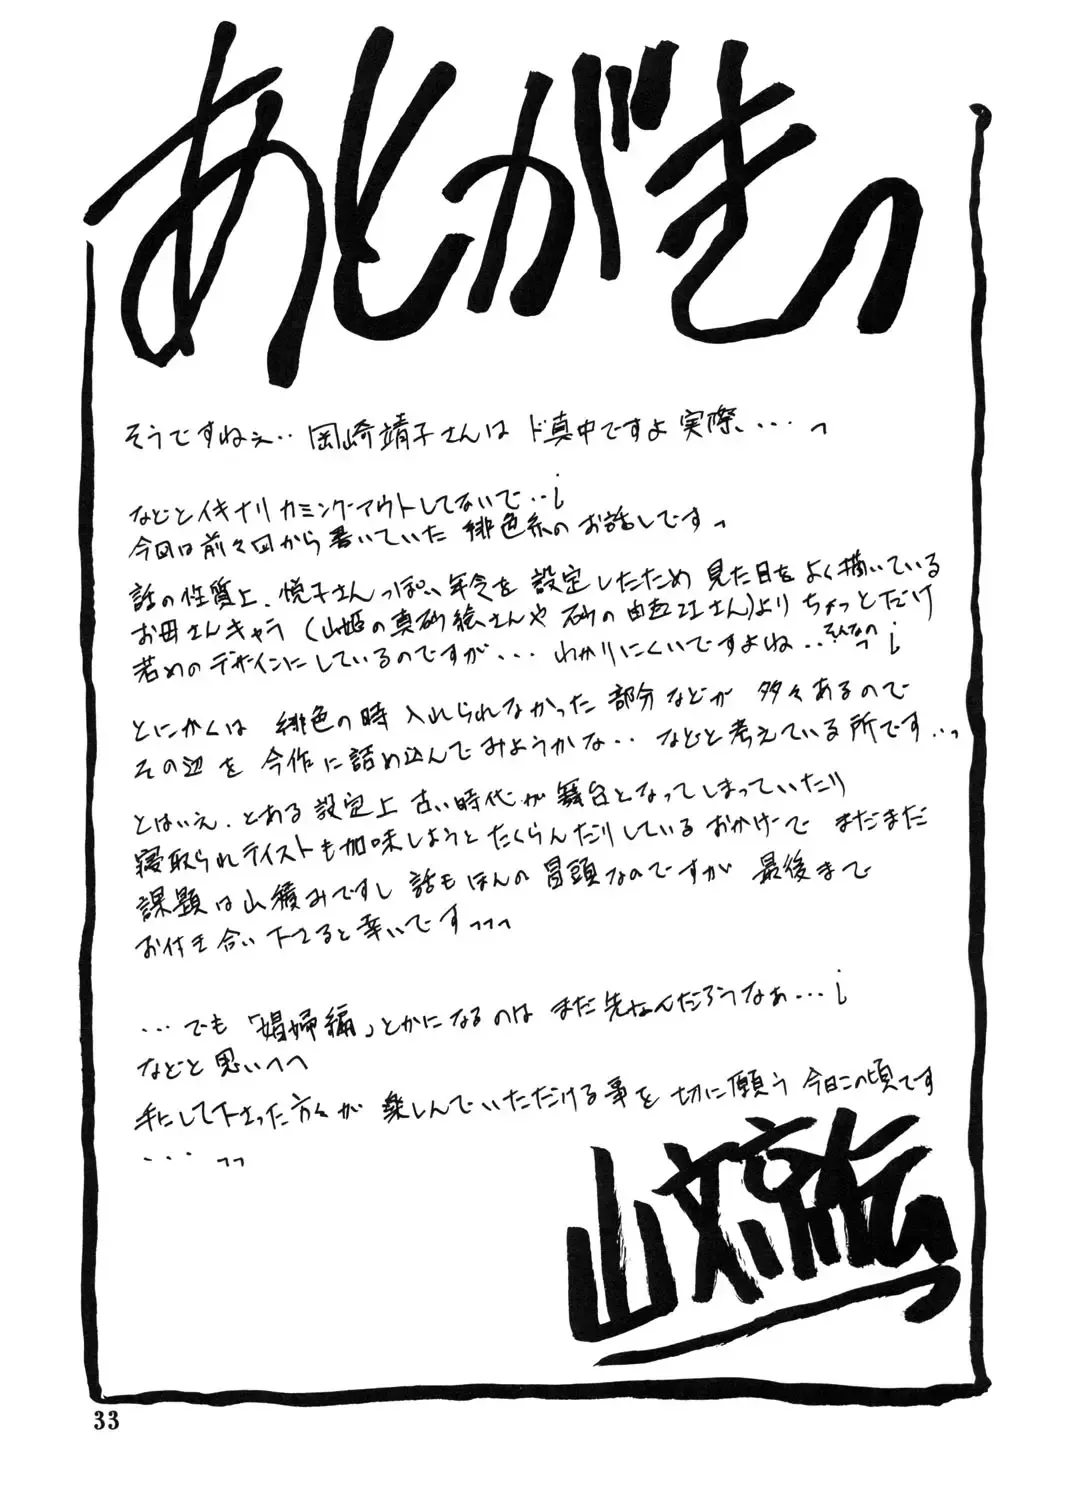 あとがきっ
そうですねぇ‥岡崎靖子さんは ド真中ですよ実際、‥‥っ
などとイキナリ カミングアウトしてないで‥¡
今回は前々回から書いていた 緋色系の お話しですっ
話の性質上、悦子さんっぽい年令を 設定したため 見た目をよく描いている
お母さんキャラ (山姫の真砂絵さんや 砂の由吾江さん)より ちょっとだけ
若めのデザインにしているのですが・・・ わかりにくいですよね‥そんなのっ¡
とにかくは 緋色の時 入れられなかった 部分などが 多々あるので
その辺を 今作に詰め込んでみようかな‥ などと考えている所です‥っ
とはいえ、とある設定上 古い時代が舞台となってしまっていたり
寝取られテイストも加味しようと たくらんだりしているおかげで まだまだ
課題は山積みですし 話もほんの 冒頭なのですが 最後まで
お付き合い下さると幸いですっっっ
・・・でも「娼婦編」とかになるのは まだ先なんだろうなぁ・・・¡
などと思いつつ
手にして下さった方々が 楽しんでいただける事を 切に願う 今日この頃です
・・・っっ
山文京伝
33